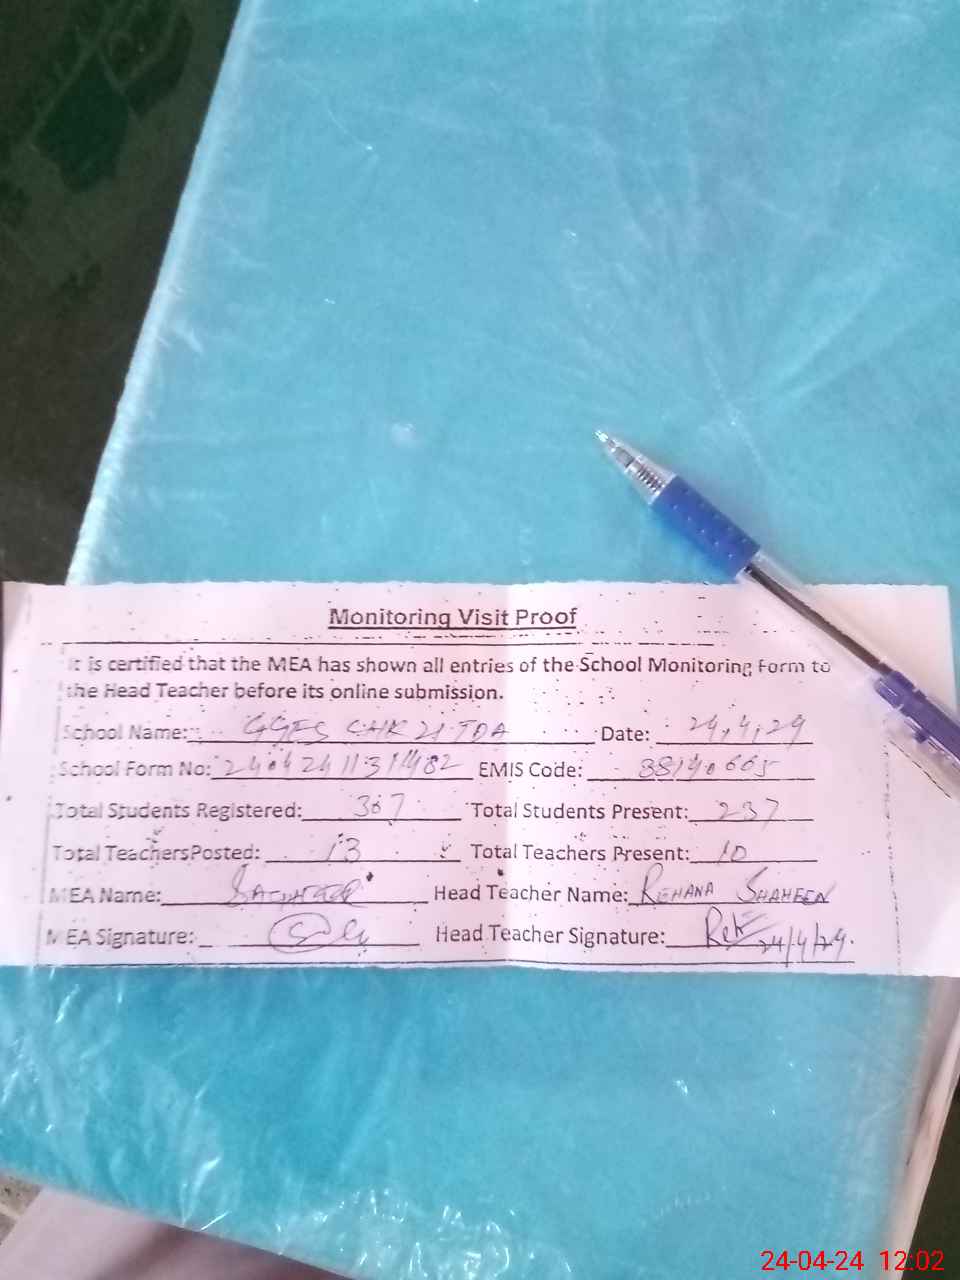 Monitoring Visit Proof
It is certified that the MEA has shown all entries of the School Monitoring Form to
the Head Teacher before its online submission.
School Name: GGES CHK 21 TDA Date: 24,4,24
School Form No: EMIS Code:
Total Students Registered: 367 Total Students Present: 237
Total TeachersPosted: 13 Total Teachers Present: 10
MEA Name: Head Teacher Name: REHANA SHAHEEN
MEA Signature: Head Teacher Signature: 24/4/24.
24-04-24 12:02